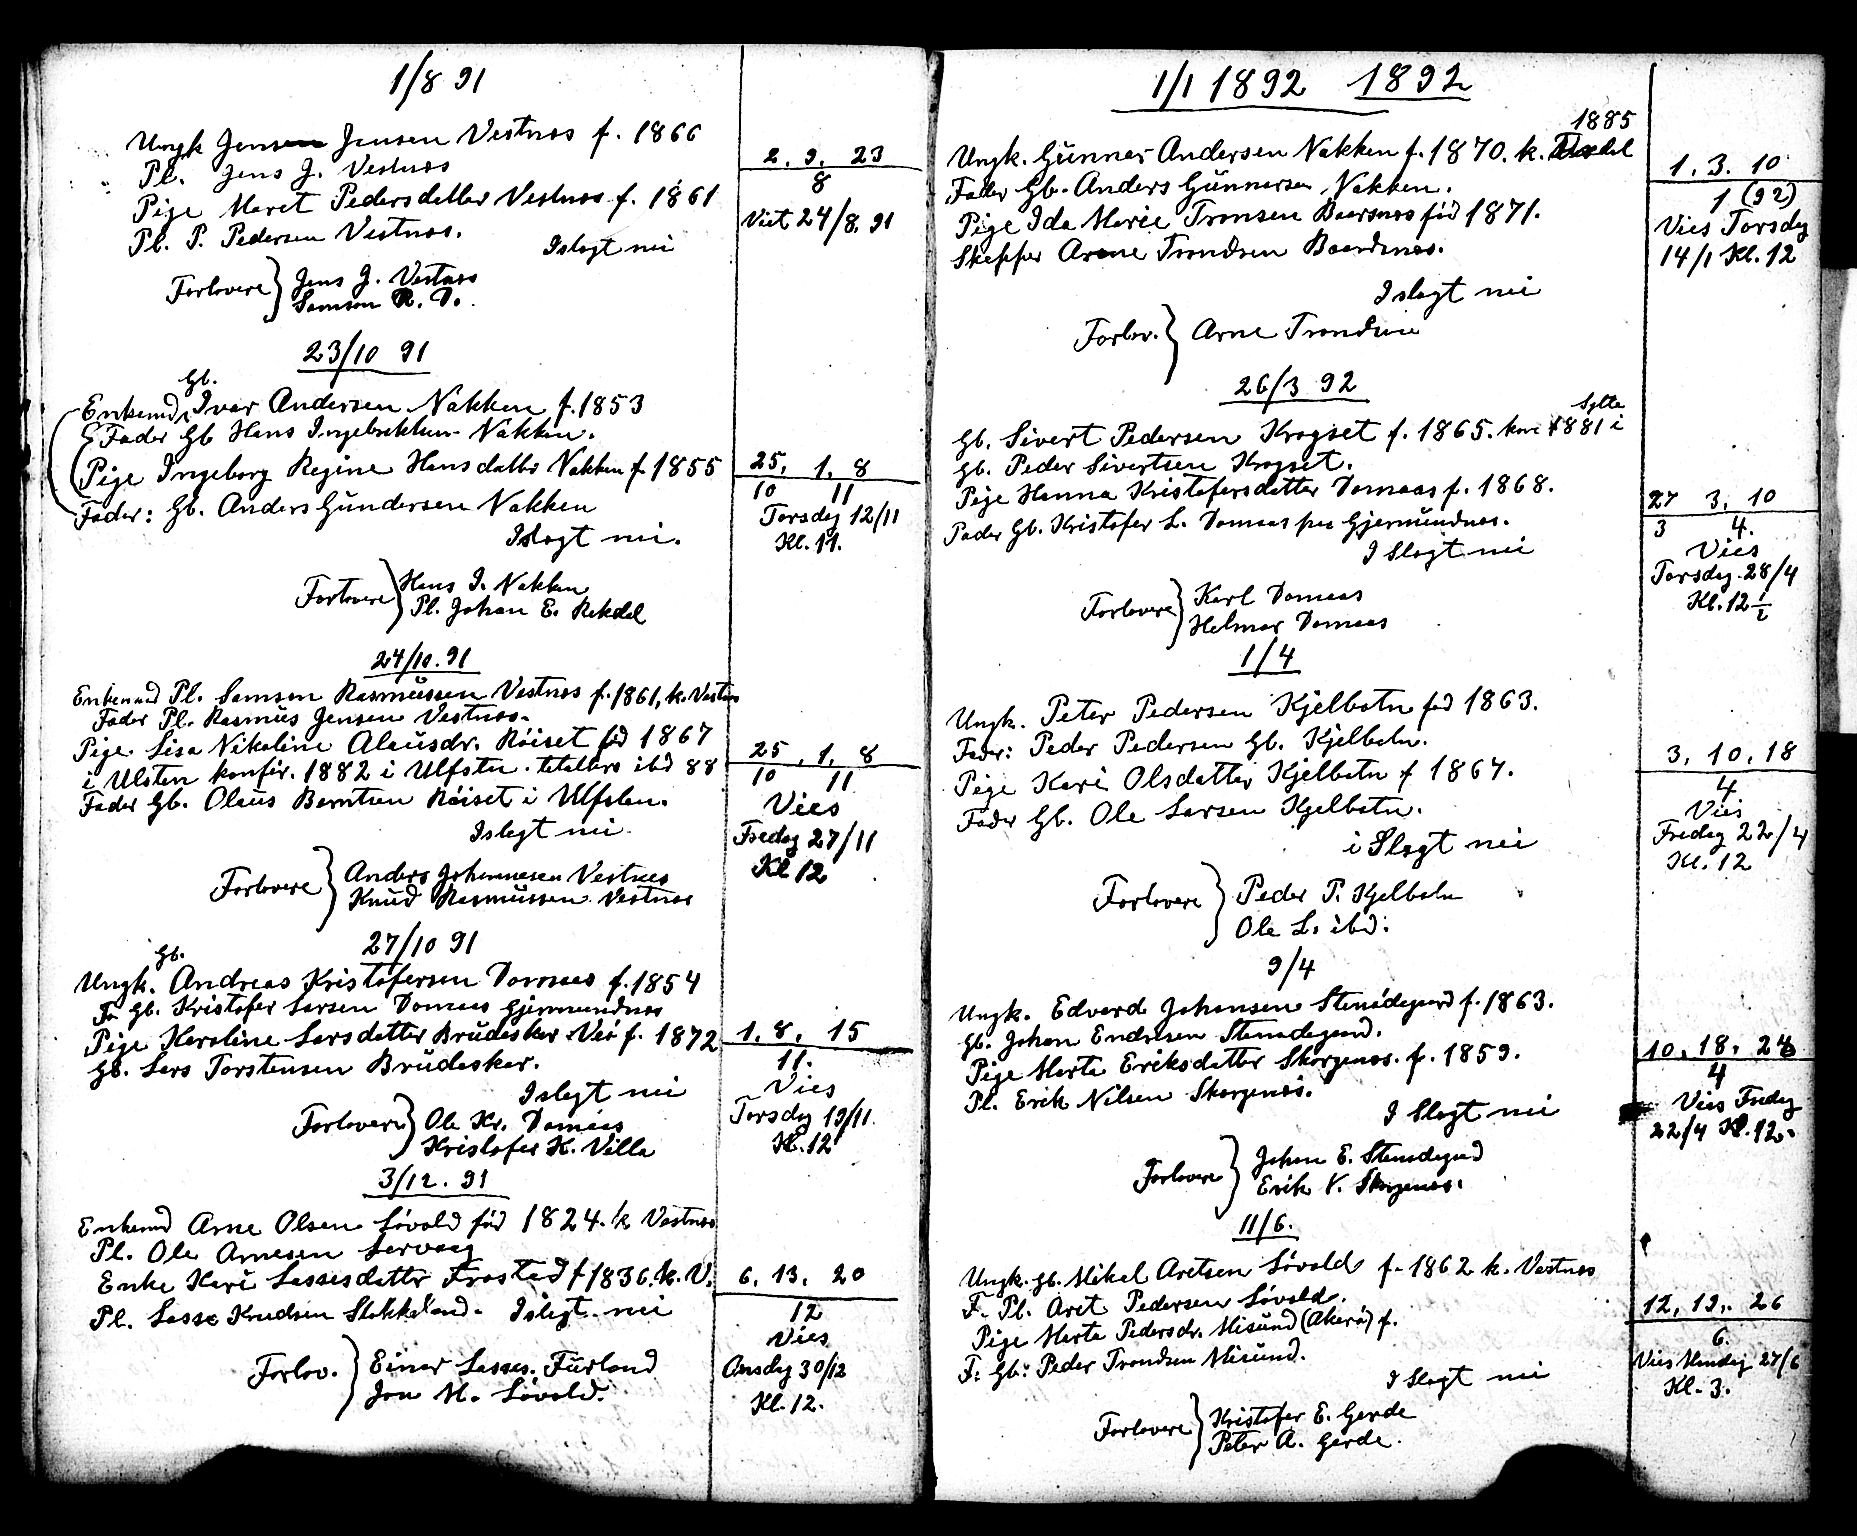 1/8 91
Ungk Jens Jensen Vestnes f. 1866
Pl. Jens J. Vestnes
Pige Maret Pedersdatter Vestnes f. 1861
Pl. P. Pedersen Vestnes.
I slegt nei
Forlovere } Jens J. Vestnes
Samson R. D.
2. 9. 23
8
Viet 24/8. 91
23/10 91
Gb.
Enkemd Ivar Andersen Nakken f. 1853
Fader Gb Hans Ingebrektsen Nakken.
Pige Ingeborg Regine Hansdatter Nakken f 1855
Fader: Gb. Anders Gundersen Nakken
I slegt nei.
Forlovere } Hans I. Nakken
Pl. Johan E. Rekdal
25. 1. 8
10 11
Torsdag 12/11
Kl. 11.
24/10. 91
Enkemd Pl. Samson Rasmussen Vestnes f. 1861, k. Vestnes
Fader Pl. Rasmus Jensen Vestnes.
Pige Lisa Nikoline Olausdr. Röiset föd 1867
i Ulsten konfir. 1882 i Ulfstn. ibd 88
Fader Gb. Olaus Berntsen Röiset i Ulfsten.
I slegt nei.
Forlovere } Anders Johannesen Vestnes
Knud Rasmussen Vestnes
25. 1. 8
10 11
Vies
Fredag 27/11
Kl 12
27/10 91
Gb.
Ungk. Andreas Kristofersen Domaas f. 1854
Fa Gb. Kristofer Larsen Domaas Gjermundnes
Pige Karoline Larsdatter Brudesker Veö f. 1872
Gb. Lars Torstensen Brudesker.
I slegt nei
Forlovere } Ole Kr. Domaas
Kristofer K. Villa
1. 8. 15
11.
Vies
Torsdag 19/11.
Kl. 12
3/12. 91
Enkemd Arne Olsen Lövold föd 1824. k Vestnes
Pl. Ole Arnesen
Enke Kari Lassesdatter Frostad f 1836. k. V.
Pl. Lasse Knudsen Stokkeland. I slegt nei
Forlov. } Einar Lasses. Furland
Jon M. Lövold.
6. 13. 20
12
Vies
Onsdag 30/12
Kl. 12.
1/1 1892 1892
1885
Ungk. Gunnar Andersen Nakken f. 1870. k.
Fader Gb. Anders Gunnarsen Nakken.
Pige Ida Marie Tronsen Baarsnes föd 1871.
Skepper Arne Trondsen Baardsnes.
I slegt nei
Forlov. } Arne Trondsen
1. 3. 10
1 (92)
Vies Torsdag
14/1 Kl. 12
26/3 92
Sylte
Gb. Sivert Pedersen Krogset f. 1865. kon 1881 i
Gb. Peder Sivertsen Krogset.
Pige Hanna Kristofersdatter Domaas f. 1868.
Fader Gb. Kristofer L. Domaas paa Gjermundnes.
I Slegt nei
Forlovere } Karl Domaas
Helmar Domaas
27 3. 10
3 4.
Vies
Torsdag 28/4
Kl. 12 1/2
1/4
Ungk. Peter Pedersen Kjelbotn föd 1863.
Fader: Peder Pedersen Gb. Kjelbotn.
Pige Kari Olsdatter Kjelbotn f 1867.
Fader Gb. Ole Larsen Kjelbotn.
i Slegt nei
Forlovere } Peder P. Kjelbotn
Ole L. ibd.
3. 10. 18
4
Vies
Fredag 22/4
Kl. 12
9/4
Ungk. Edvard Johansen Stenödegaard f. 1863.
Gb. Johan Endresen Stenödegard.
Pige Marta Eriksdatter Skorgenes. f. 1859.
Pl. Erik Nilsen Skorgenes.
I Slegt nei
Forlovere } Johan E. Stenödegard
Erik N. Skorgenes.
10. 18. 24
4
Vies Fredag
22/4 Kl. 12.
11/6.
Ungk. Gb. Mikal Aretsen Lövold f. 1862 k. Vestnes
F. Pl. Aret Pedersen Lövold.
Pige Marta Pedersdr. Misund (Akerö) f.
F: Gb: Peder Trondsen Misund.
I Slegt nei
Forlovere } Kristofer E. Gerde
Peter A. Gerde.
12. 19. 26
6.
Vies Mandag 27/6
Kl. 3.